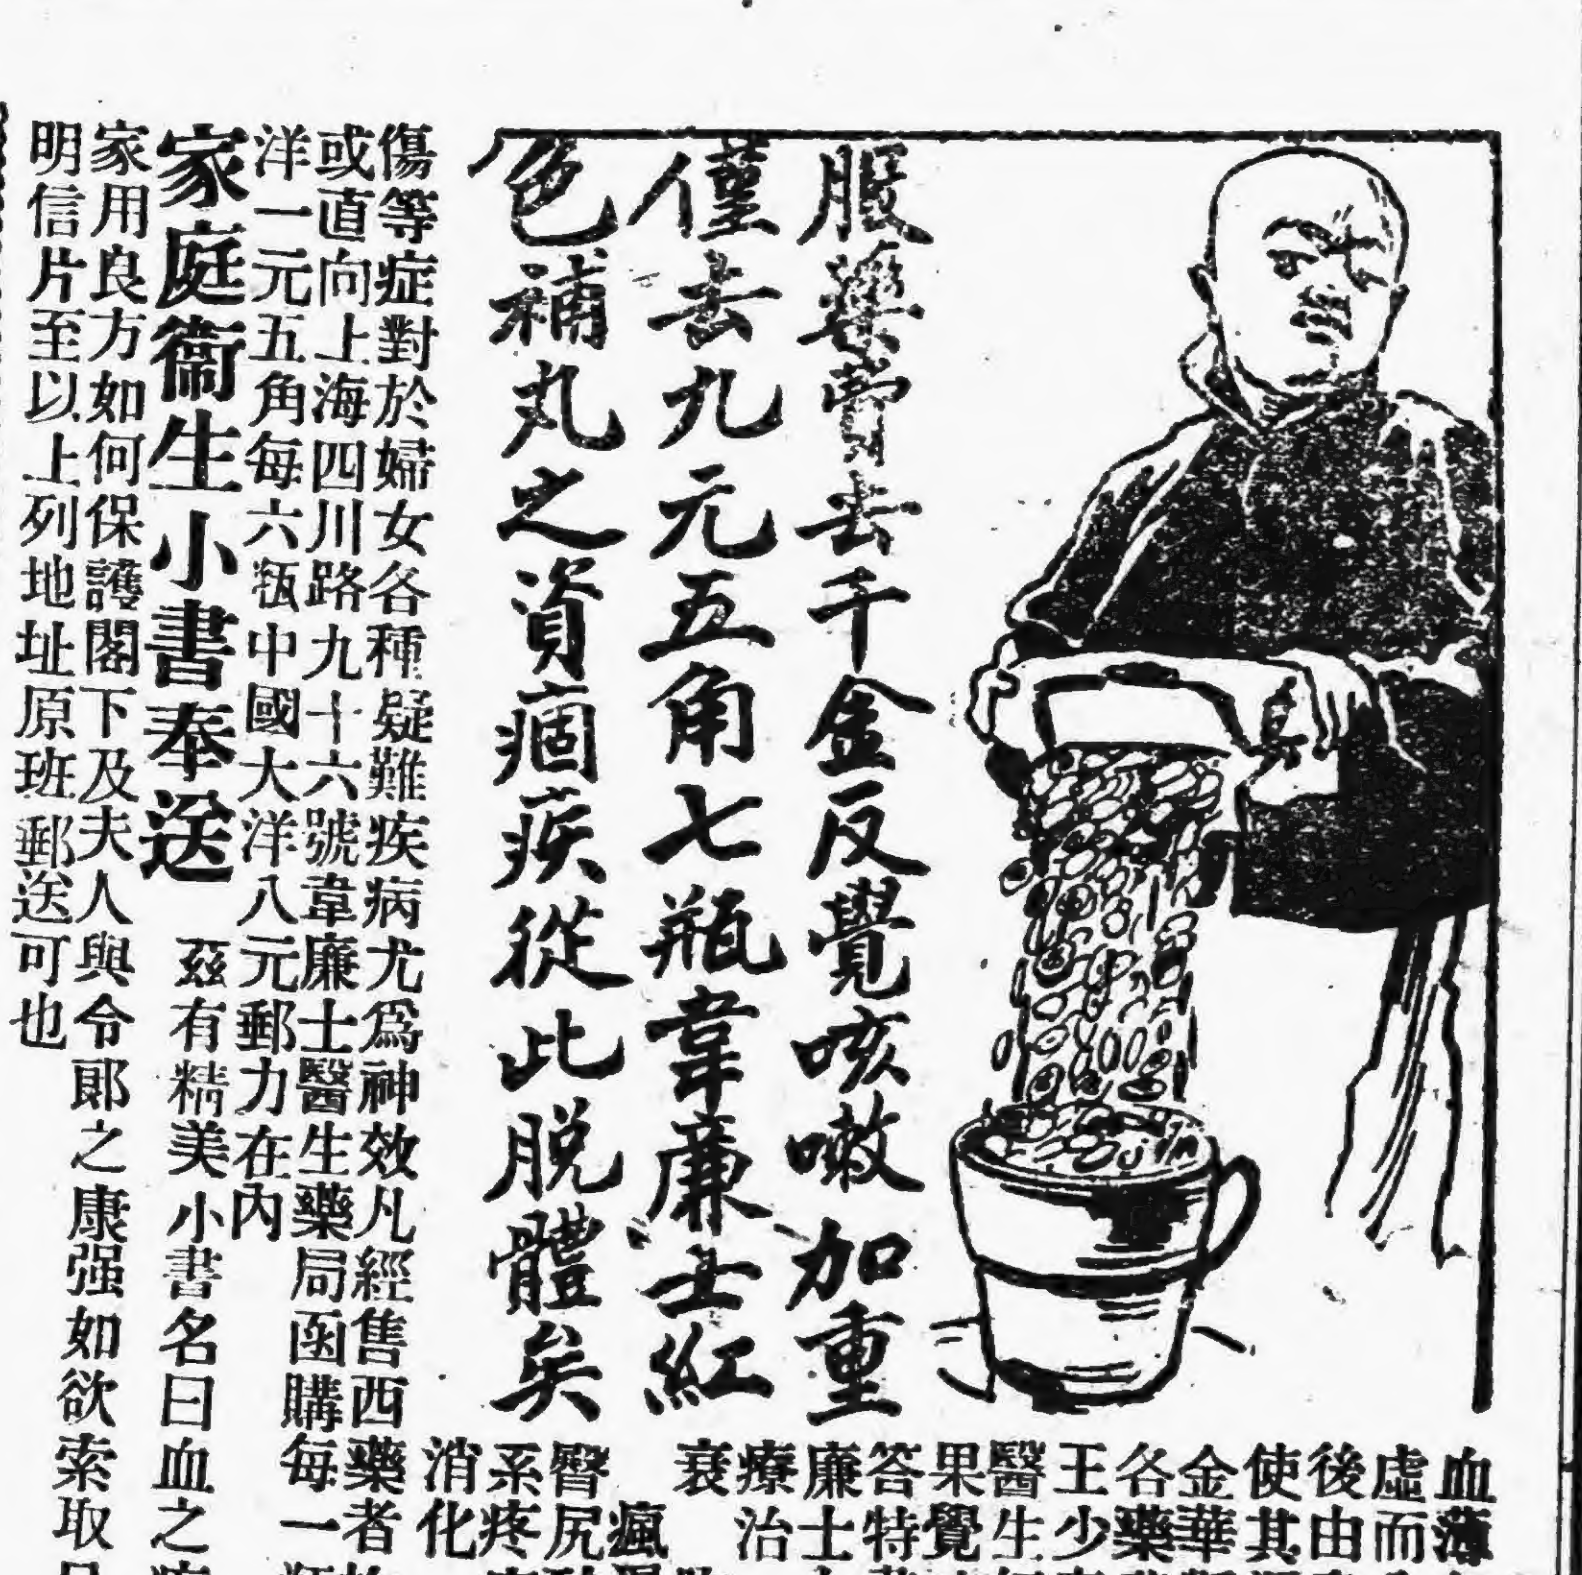 服藥費去千金反覺咳嗽加重
僅去九元五角七瓶韋廉士紅
色補丸之資痼疾從此脫體矣
血薄
虛而
後由
使其
金華
各藥
王少
醫生
果覺
答特
廉士
療治
衰
瘋
臀尻
系疼
消化
傷等症對於婦女各種疑難疾病尤爲神效凡經售西藥者
或直向上海四川路九十六號韋廉士醫生藥局函購每一
洋一元五角每六瓶中國大洋八元郵力在內
家庭衞生小書奉送 茲有精美小書名曰血之
家用良方如何保護閣下及夫人與令郞之康强如欲索取
明信片至以上列地址原班郵送可也